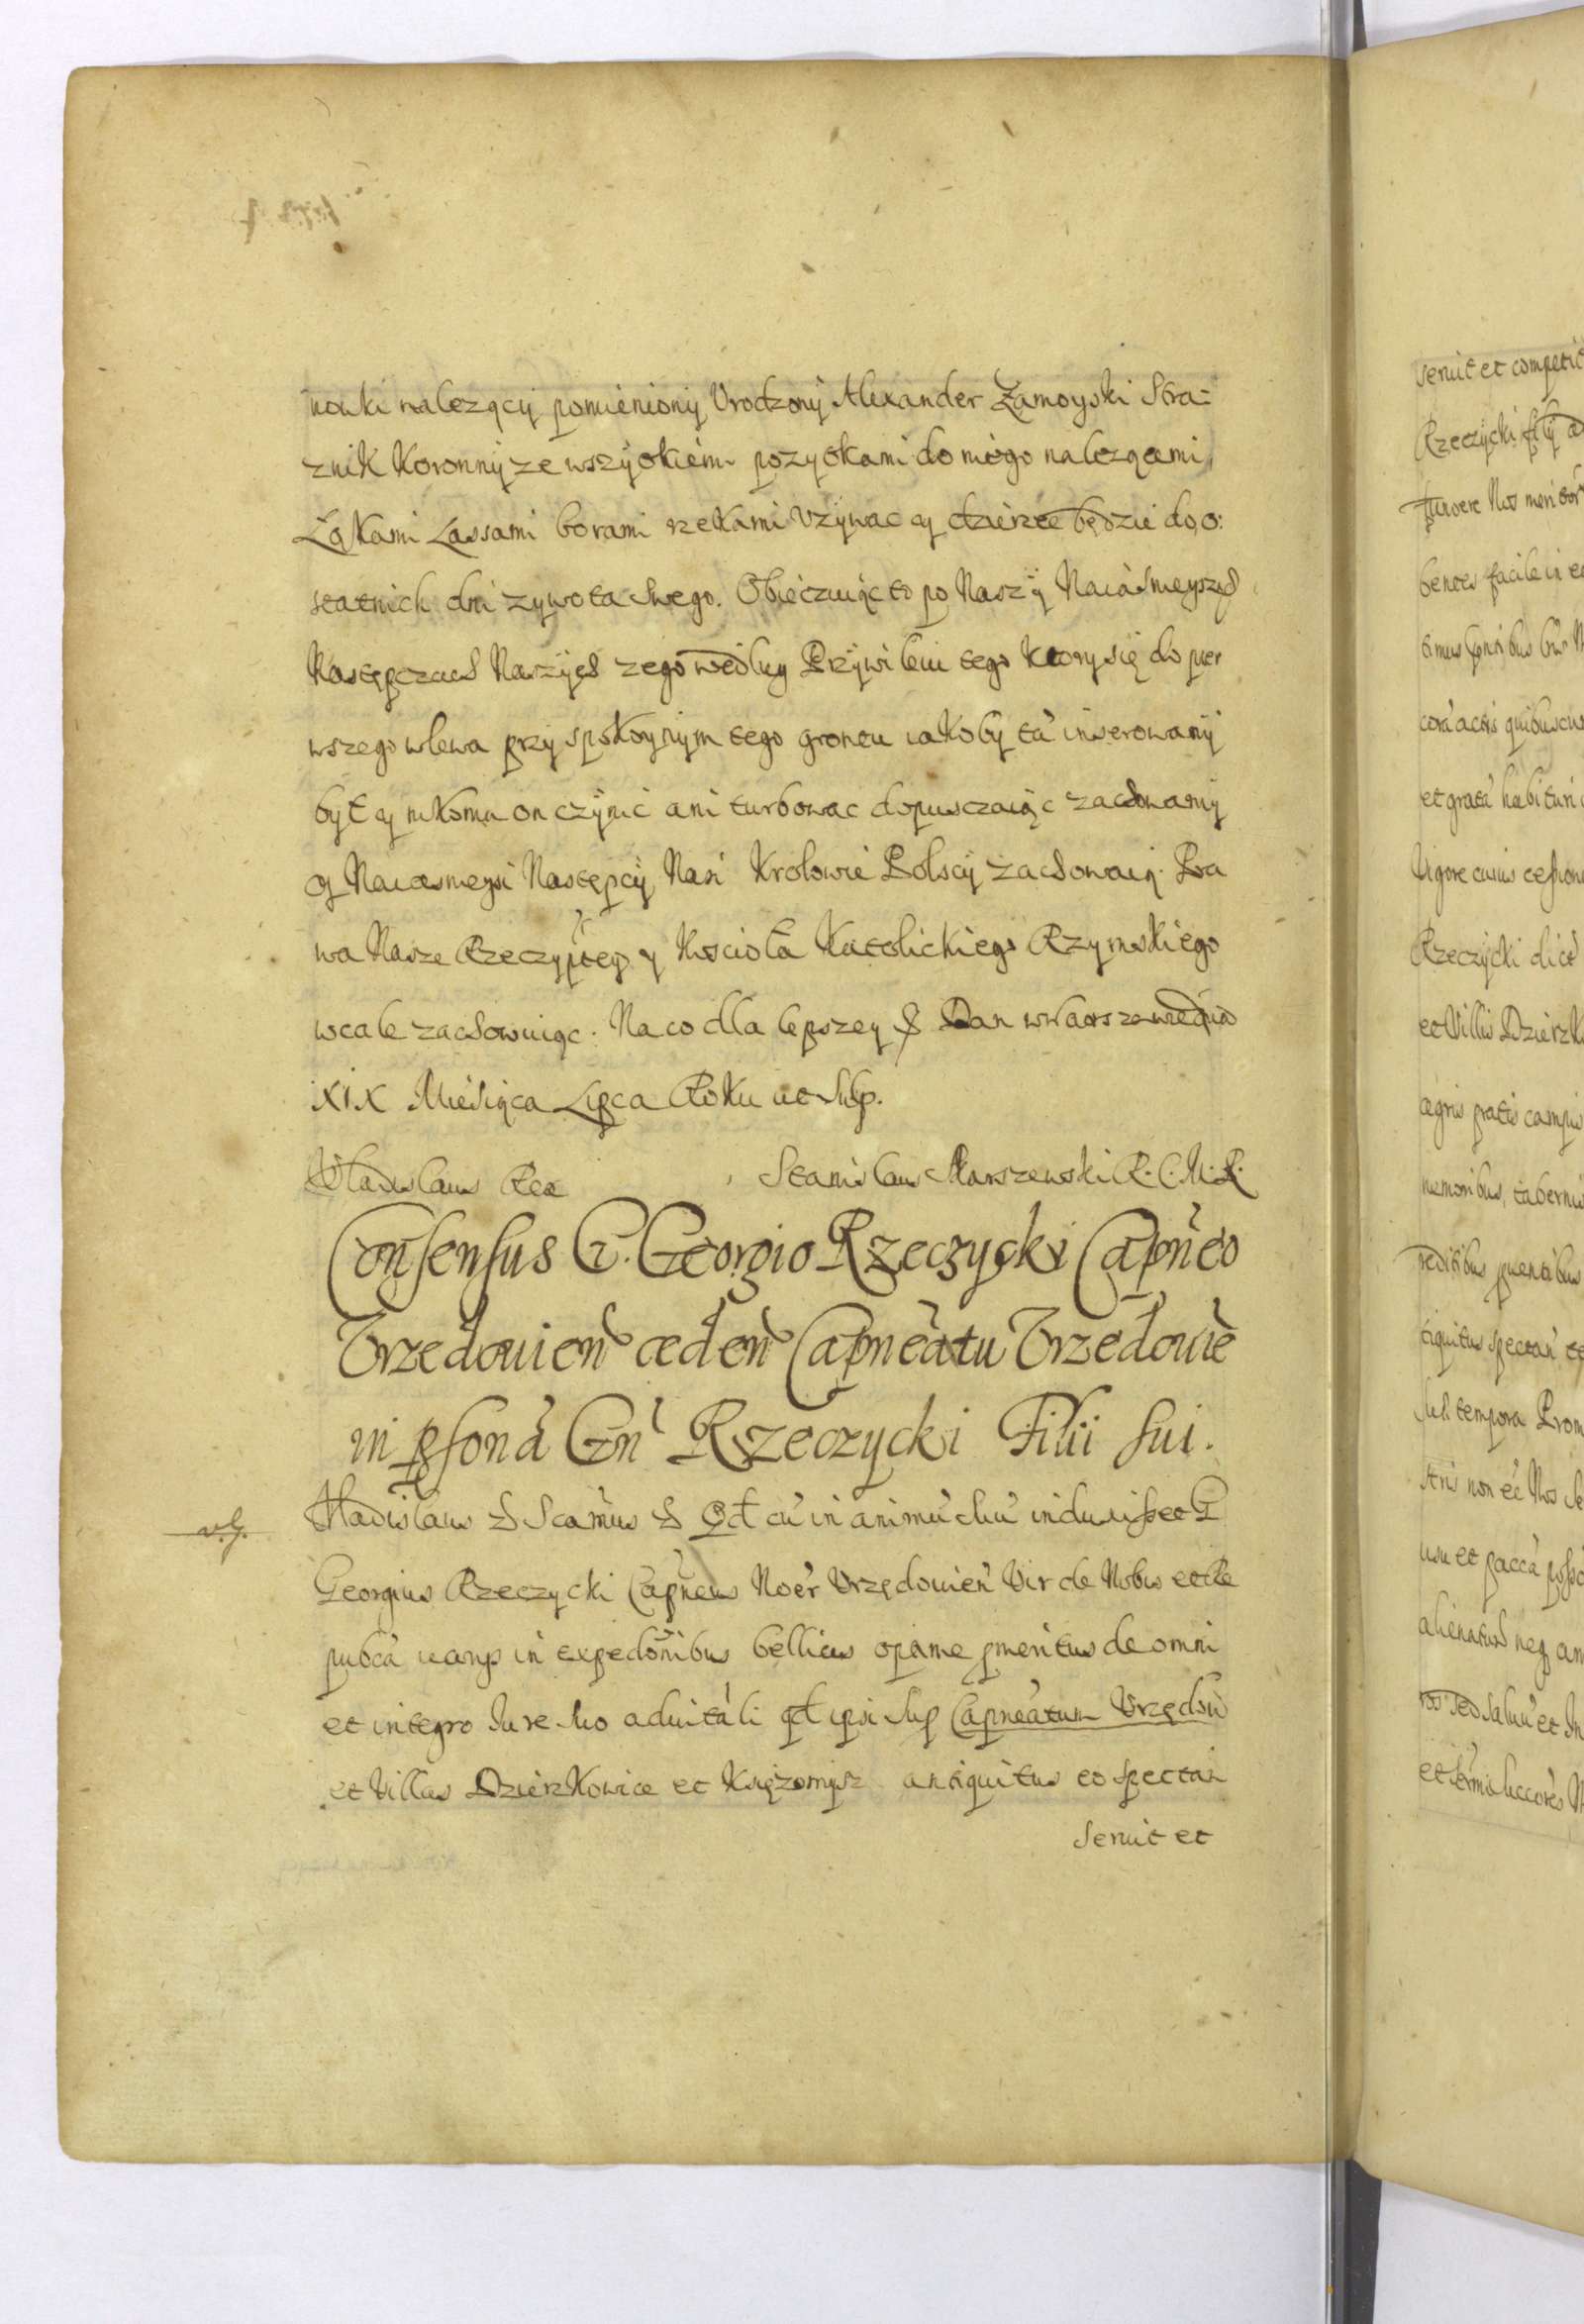 nowki nalezący pomieniony Vrodzony Alexander Zamoyski Stra=
znik Koronny ze wszyskiemi pozytkami do niego nalezącemi
Łąkami Lassami borami rzekami Vzywac y dzierzec będzie do o:
statnich dni zywota swego. Obiecuiąc to po Naszy Naiasnieyszych
Nastepczach Naszych ze go według Przywileiu tego ktory się do pier
wszego wlewa przy spokoynym tego grontu iakoby tu inserowany
był y nikomu on czynic ani turbowac dopusczaiąc zachowamy
y Naiasnieysi Nastepcy Nasi Krolowie Polscy zachowaią. Pra
wa Nasze Rzeczyptey y Kosciola Katolickiego Rzymskiego
wcale zachowuiąc. Na co dla lepszey & Dan w Warszawie dnia
XIX Miesiąca Lipca Roku ut sup.
Vladislaus Rex Stanislaus Skarszewski R. C. M. R.
Consensus G. Georgio Rzeczycki Capneo
Vrzedouien cedeń Capneatu Vrzedouie
in psoná Gn Rzeczycki Filii sui.
Vladislaus & Scamus & Qd cu in animu suu induxisset G
Georgius Rzeczycki Capneus Noer Vrzędouien Vir de Nobis et Re
pubca in expedonibus bellicis optime pmeritus de omni
et integro Iure suo aduitali qd ipsi sup Capneatum Vrzędow
et Villas Dzierzkowice et Księzomysz antiquitus eo spectan
seruit et
seruit et competit
Rzeczycki filij
benots facile in
corá actis quibuscu
et gratá habituri
Vigore cuius cession
Rzeczycki dict
et Villis Dzierzk
agris pratis campis
nemoribus, tabernis
reditibus puentibus
tiquitus spectan
tempora Prom
stris non ec Nos
usu et